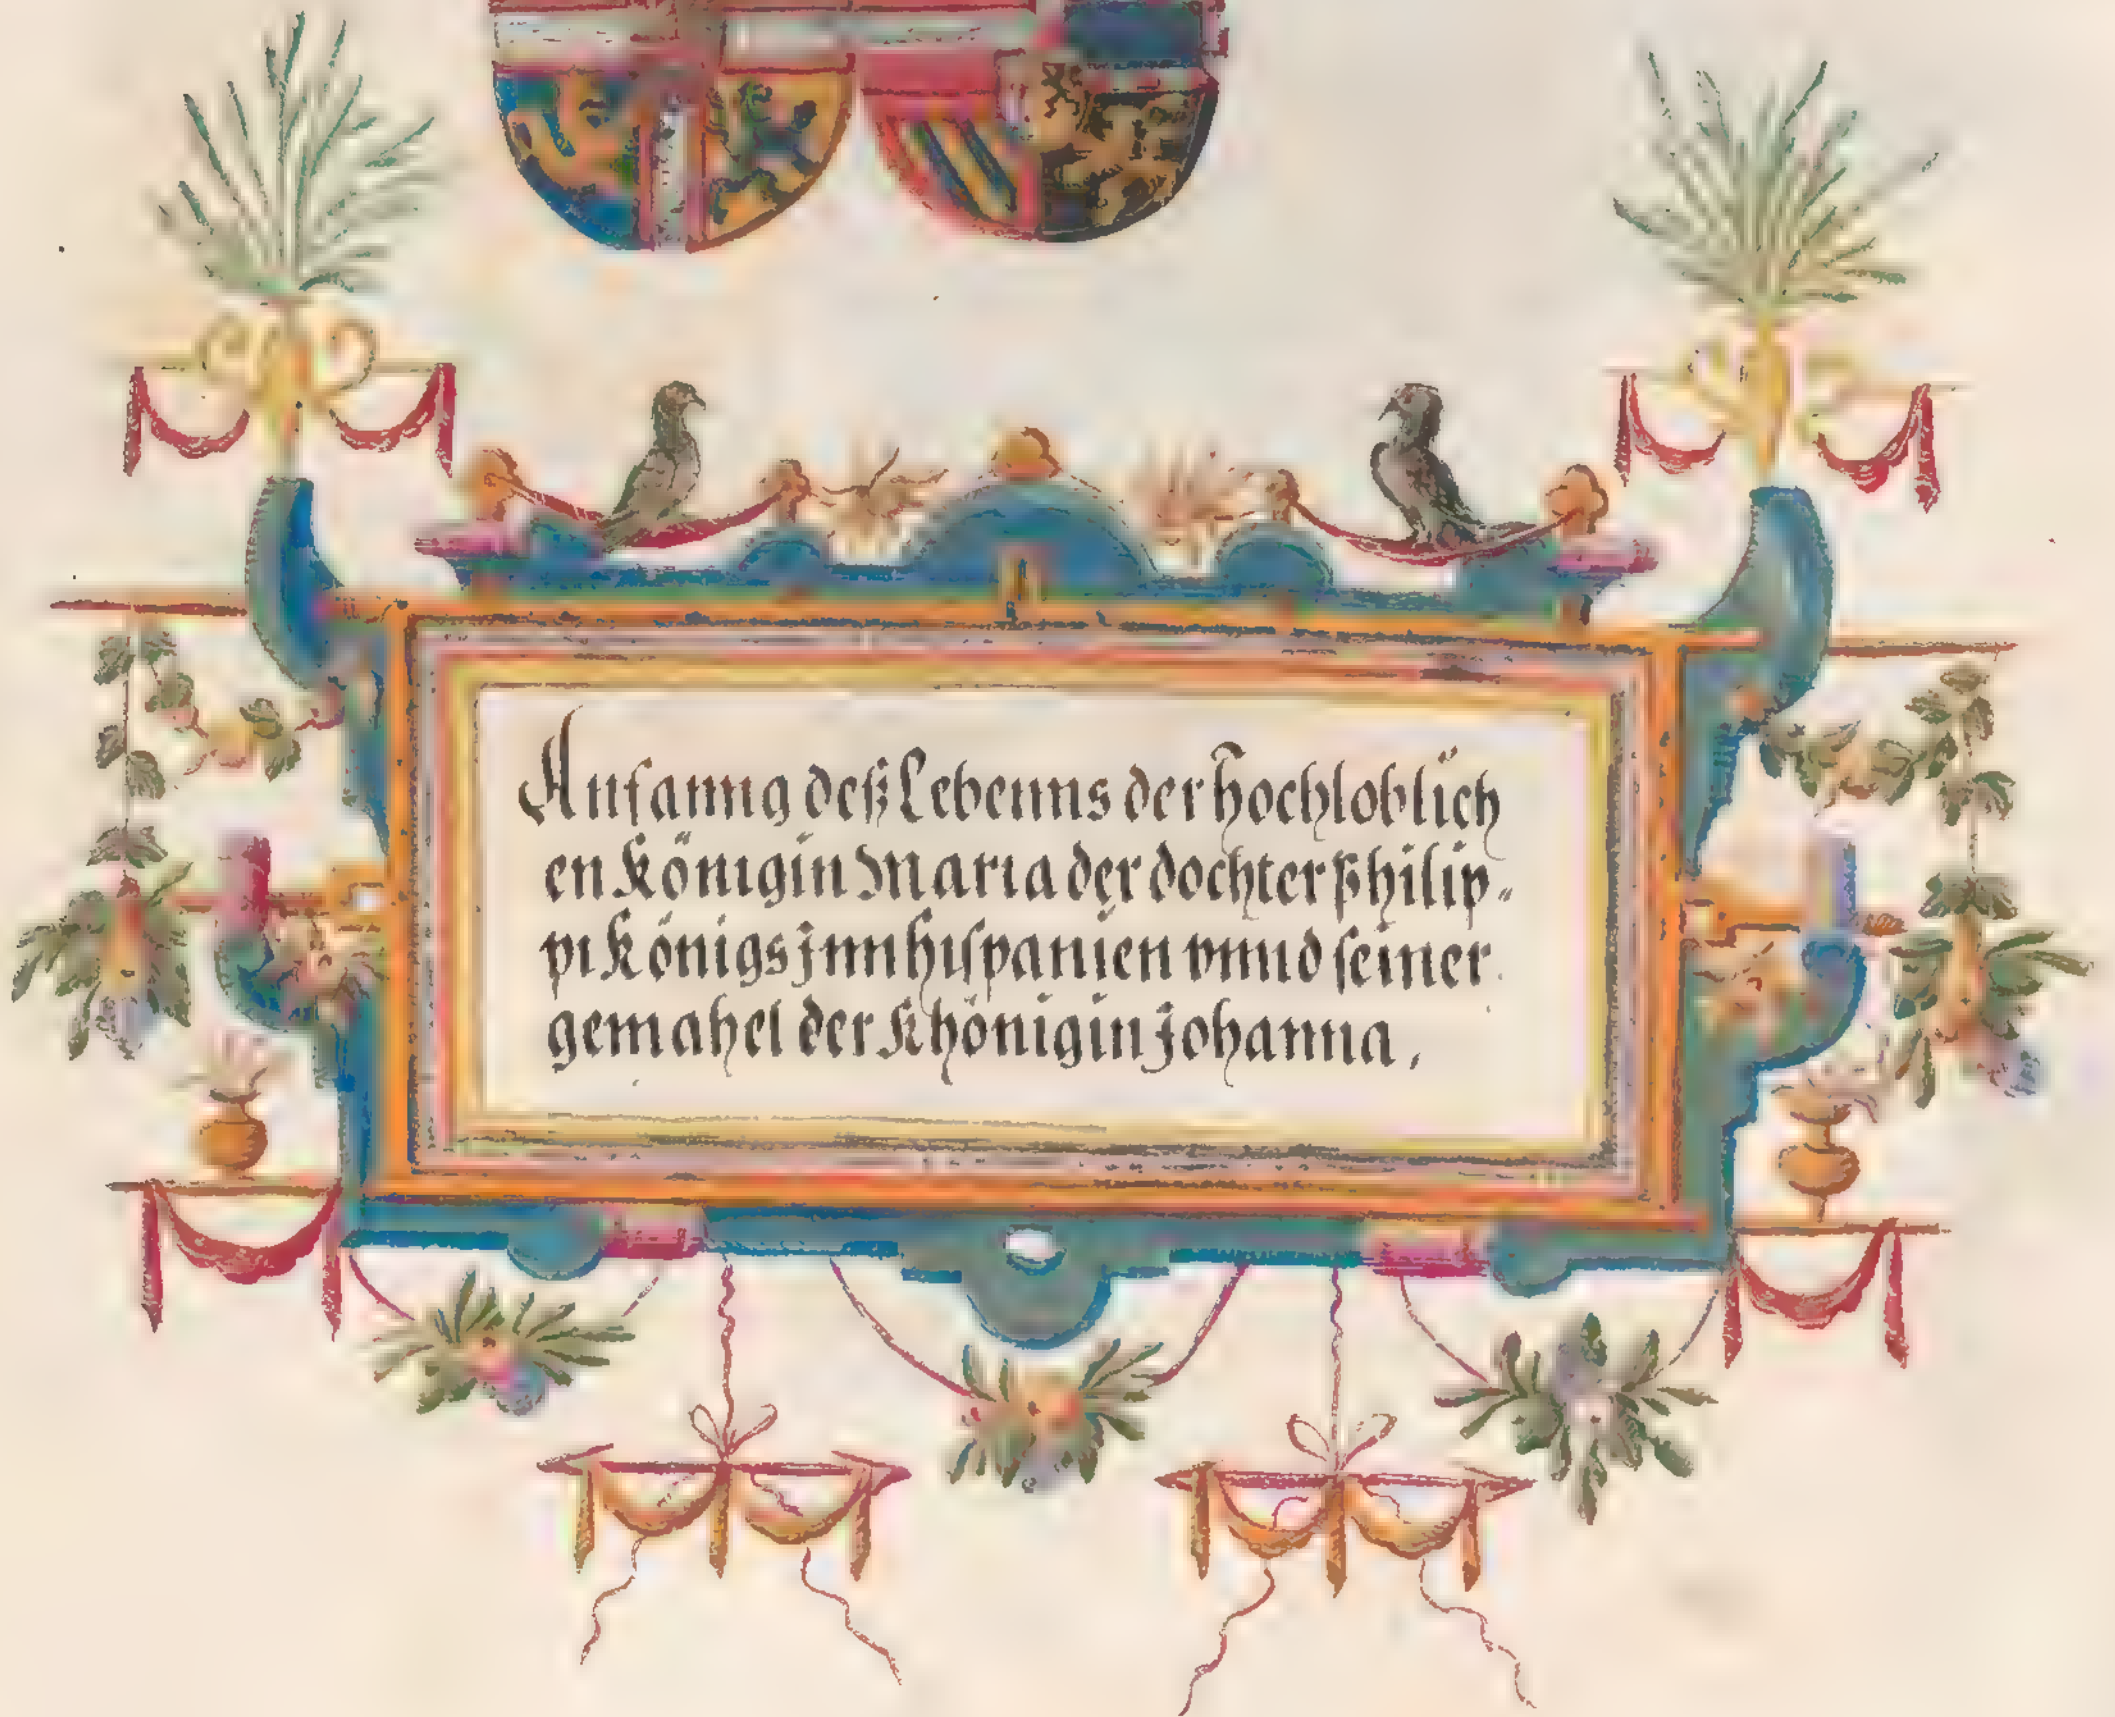 Anfanng deß Lebenns der hochloblich
en Königin Maria der dochter Philip-
pi Königs jnn hispanien vnnd seiner
gemahel der Khönigin Johanna,